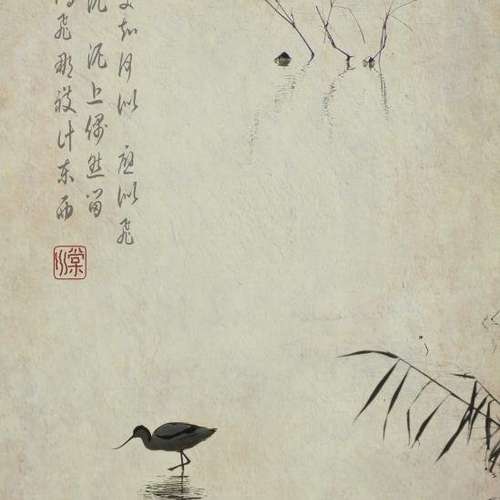 处知何似 应似飞
泥 泥上偶然留
飞那复计东西